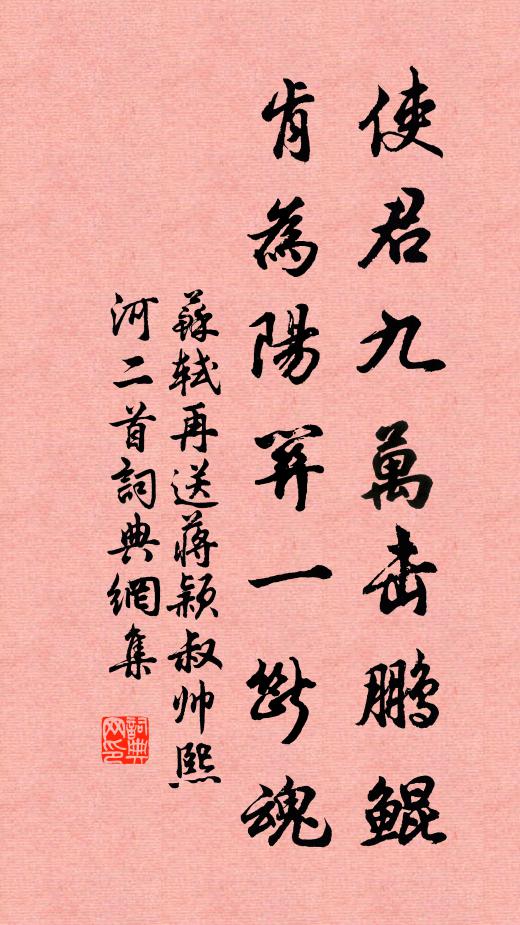 使君九萬击鵬鯤
肯為陽関一斷魂
蘇軾再送蔣颖叔帅熙
河二首詞典網集
詞典网印